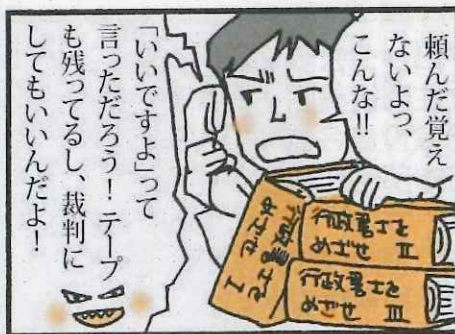 頼んだ覚え
ないよっ、
こんな!!
「いいですよ」って
言っただろう！テープ
も残ってるし、裁判に
してもいいんだよ！
行政書士を
めざせ Ⅰ
行政書士を
めざせ Ⅱ
行政書士を
めざせ Ⅲ